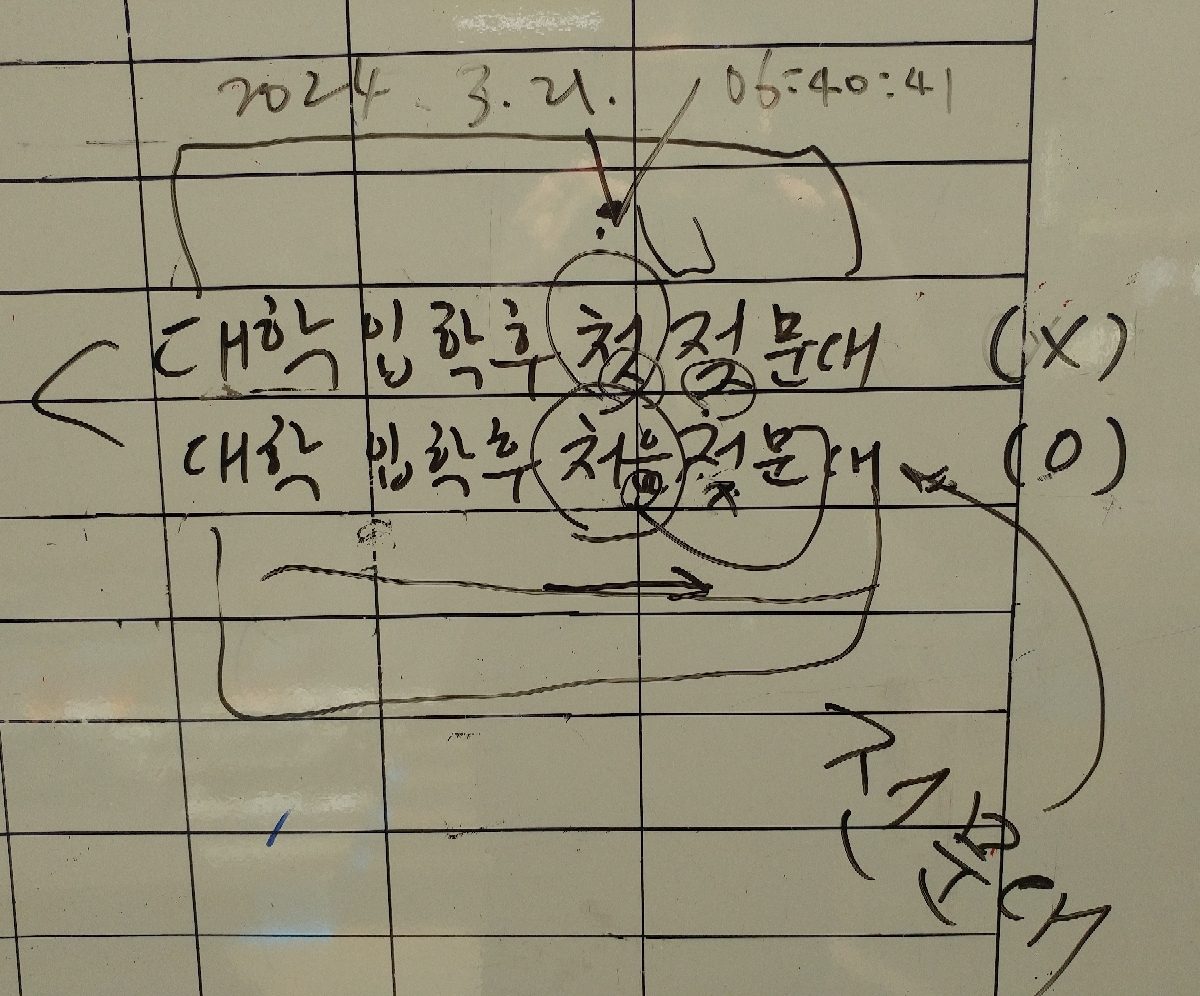 2024. 3. 21. 06:40:41
대학 입학후 첫 전문대 (X)
대학 입학후 처음 전문대 (O)